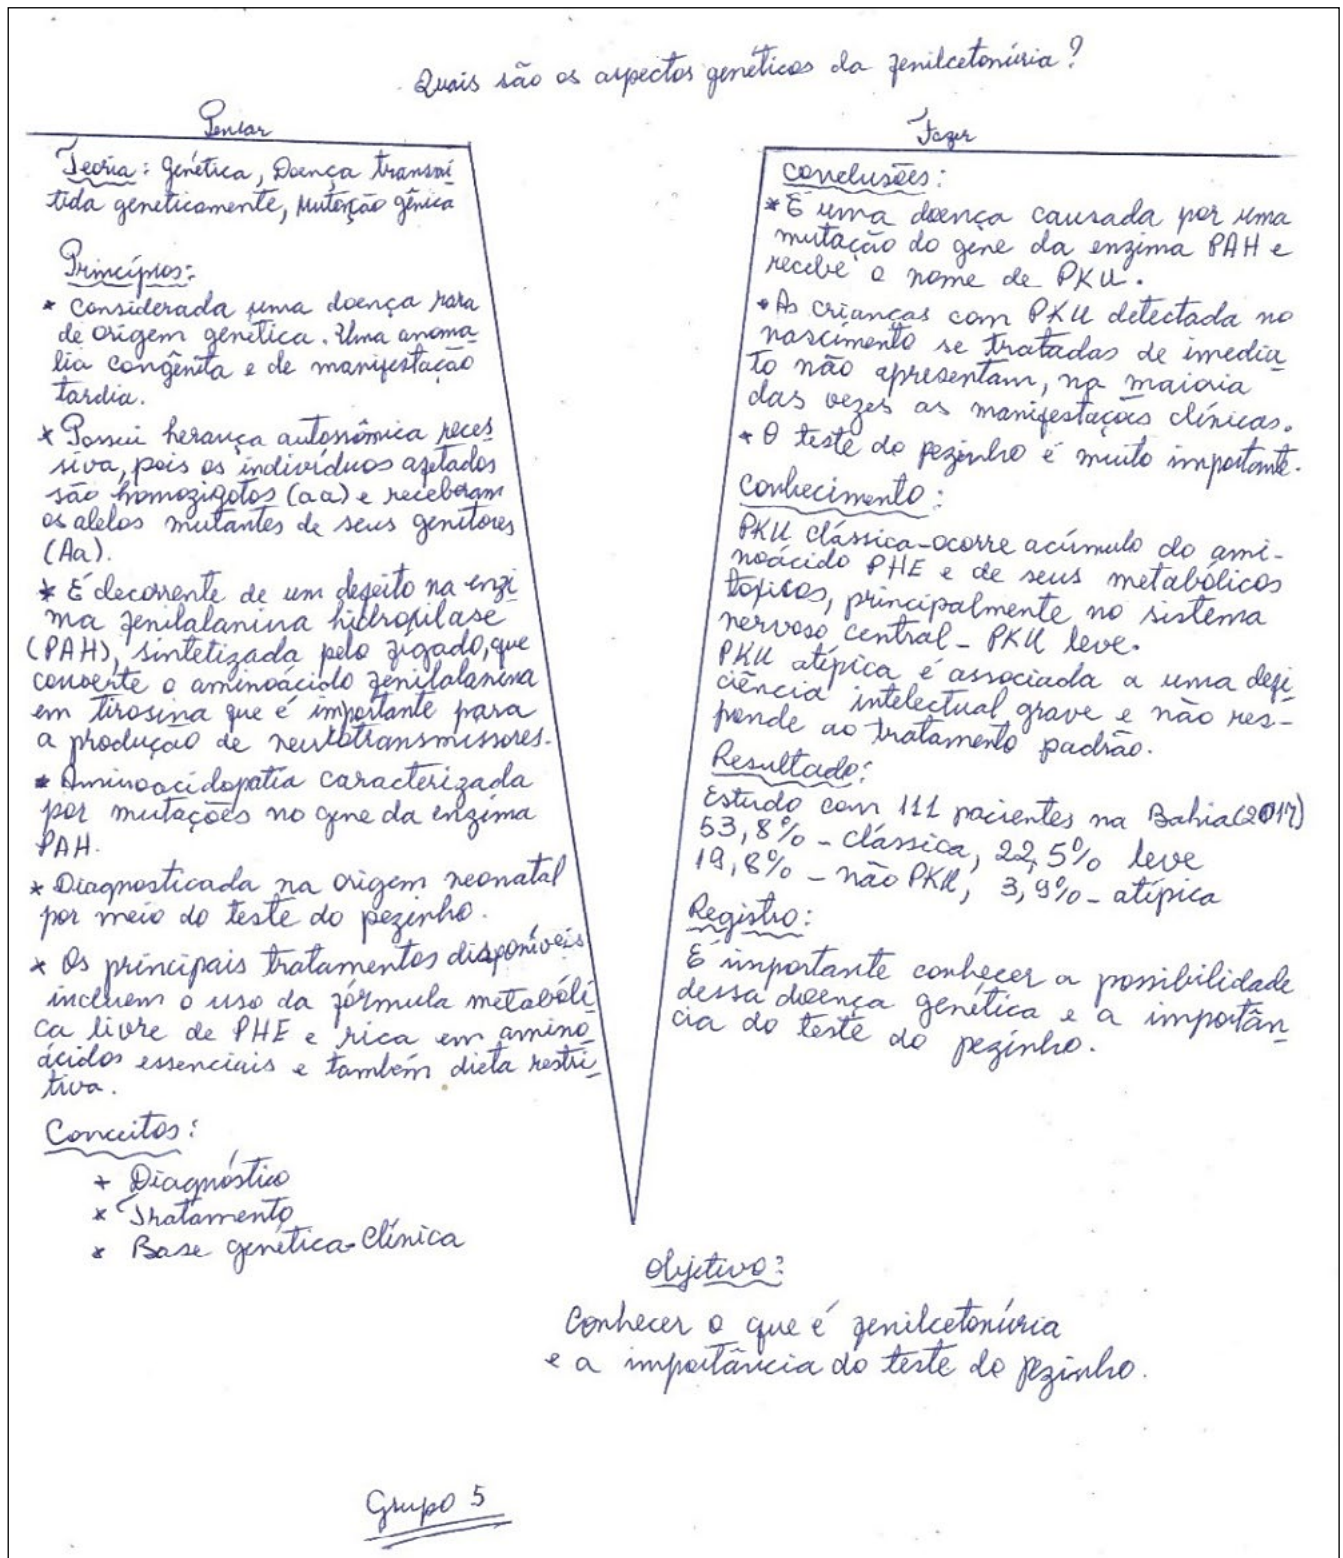 Quais são os aspectos genéticos da fenilcetonúria?
Pensar
Teoria: Genética, Doença transmi
tida geneticamente, Mutação gênica
Princípios:
* Considerada uma doença rara
de origem genética. Uma anoma
lia congênita e de manifestação
tardia.
* Possui herança autossômica reces
siva, pois os indivíduos afetados
são homozigotos (aa) e receberam
os alelos mutantes de seus genitores
(Aa).
* É decorrente de um defeito na enzi
ma fenilalanina hidroxilase
(PAH), sintetizada pelo fígado, que
converte o aminoácido fenilalanina
em tirosina que é importante para
a produção de neurotransmissores.
* Aminoacidopatia caracterizada
por mutações no gene da enzima
PAH.
* Diagnosticada na origem neonatal
por meio do teste do pezinho.
* Os principais tratamentos disponíveis
incluem o uso da fórmula metabóli
ca livre de PHE e rica em amino
ácidos essenciais e também dieta restri
tiva.
Conceitos:
* Diagnóstico
* Tratamento
* Base genética-Clínica
Fazer
Conclusões:
* É uma doença causada por uma
mutação do gene da enzima PAH e
recebe o nome de PKU.
* As crianças com PKU detectada no
nascimento se tratadas de imedia
to não apresentam, na maioria
das vezes as manifestações clínicas.
* O teste do pezinho é muito importante.
Conhecimento:
PKU clássica-ocorre acúmulo do ami-
noácido PHE e de seus metabólicos
tóxicos, principalmente no sistema
nervoso central - PKU leve.
PKU atípica é associada a uma defi
ciência intelectual grave e não res-
ponde ao tratamento padrão.
Resultado:
Estudo com 111 pacientes na Bahia (2017)
53,8% - clássica, 22,5% leve
19,8% - não PKU, 3,9% - atípica
Registro:
É importante conhecer a possibilidade
dessa doença genética e a importân
cia do teste do pezinho.
Objetivo:
Conhecer o que é fenilcetonúria
e a importância do teste do pezinho.
Grupo 5